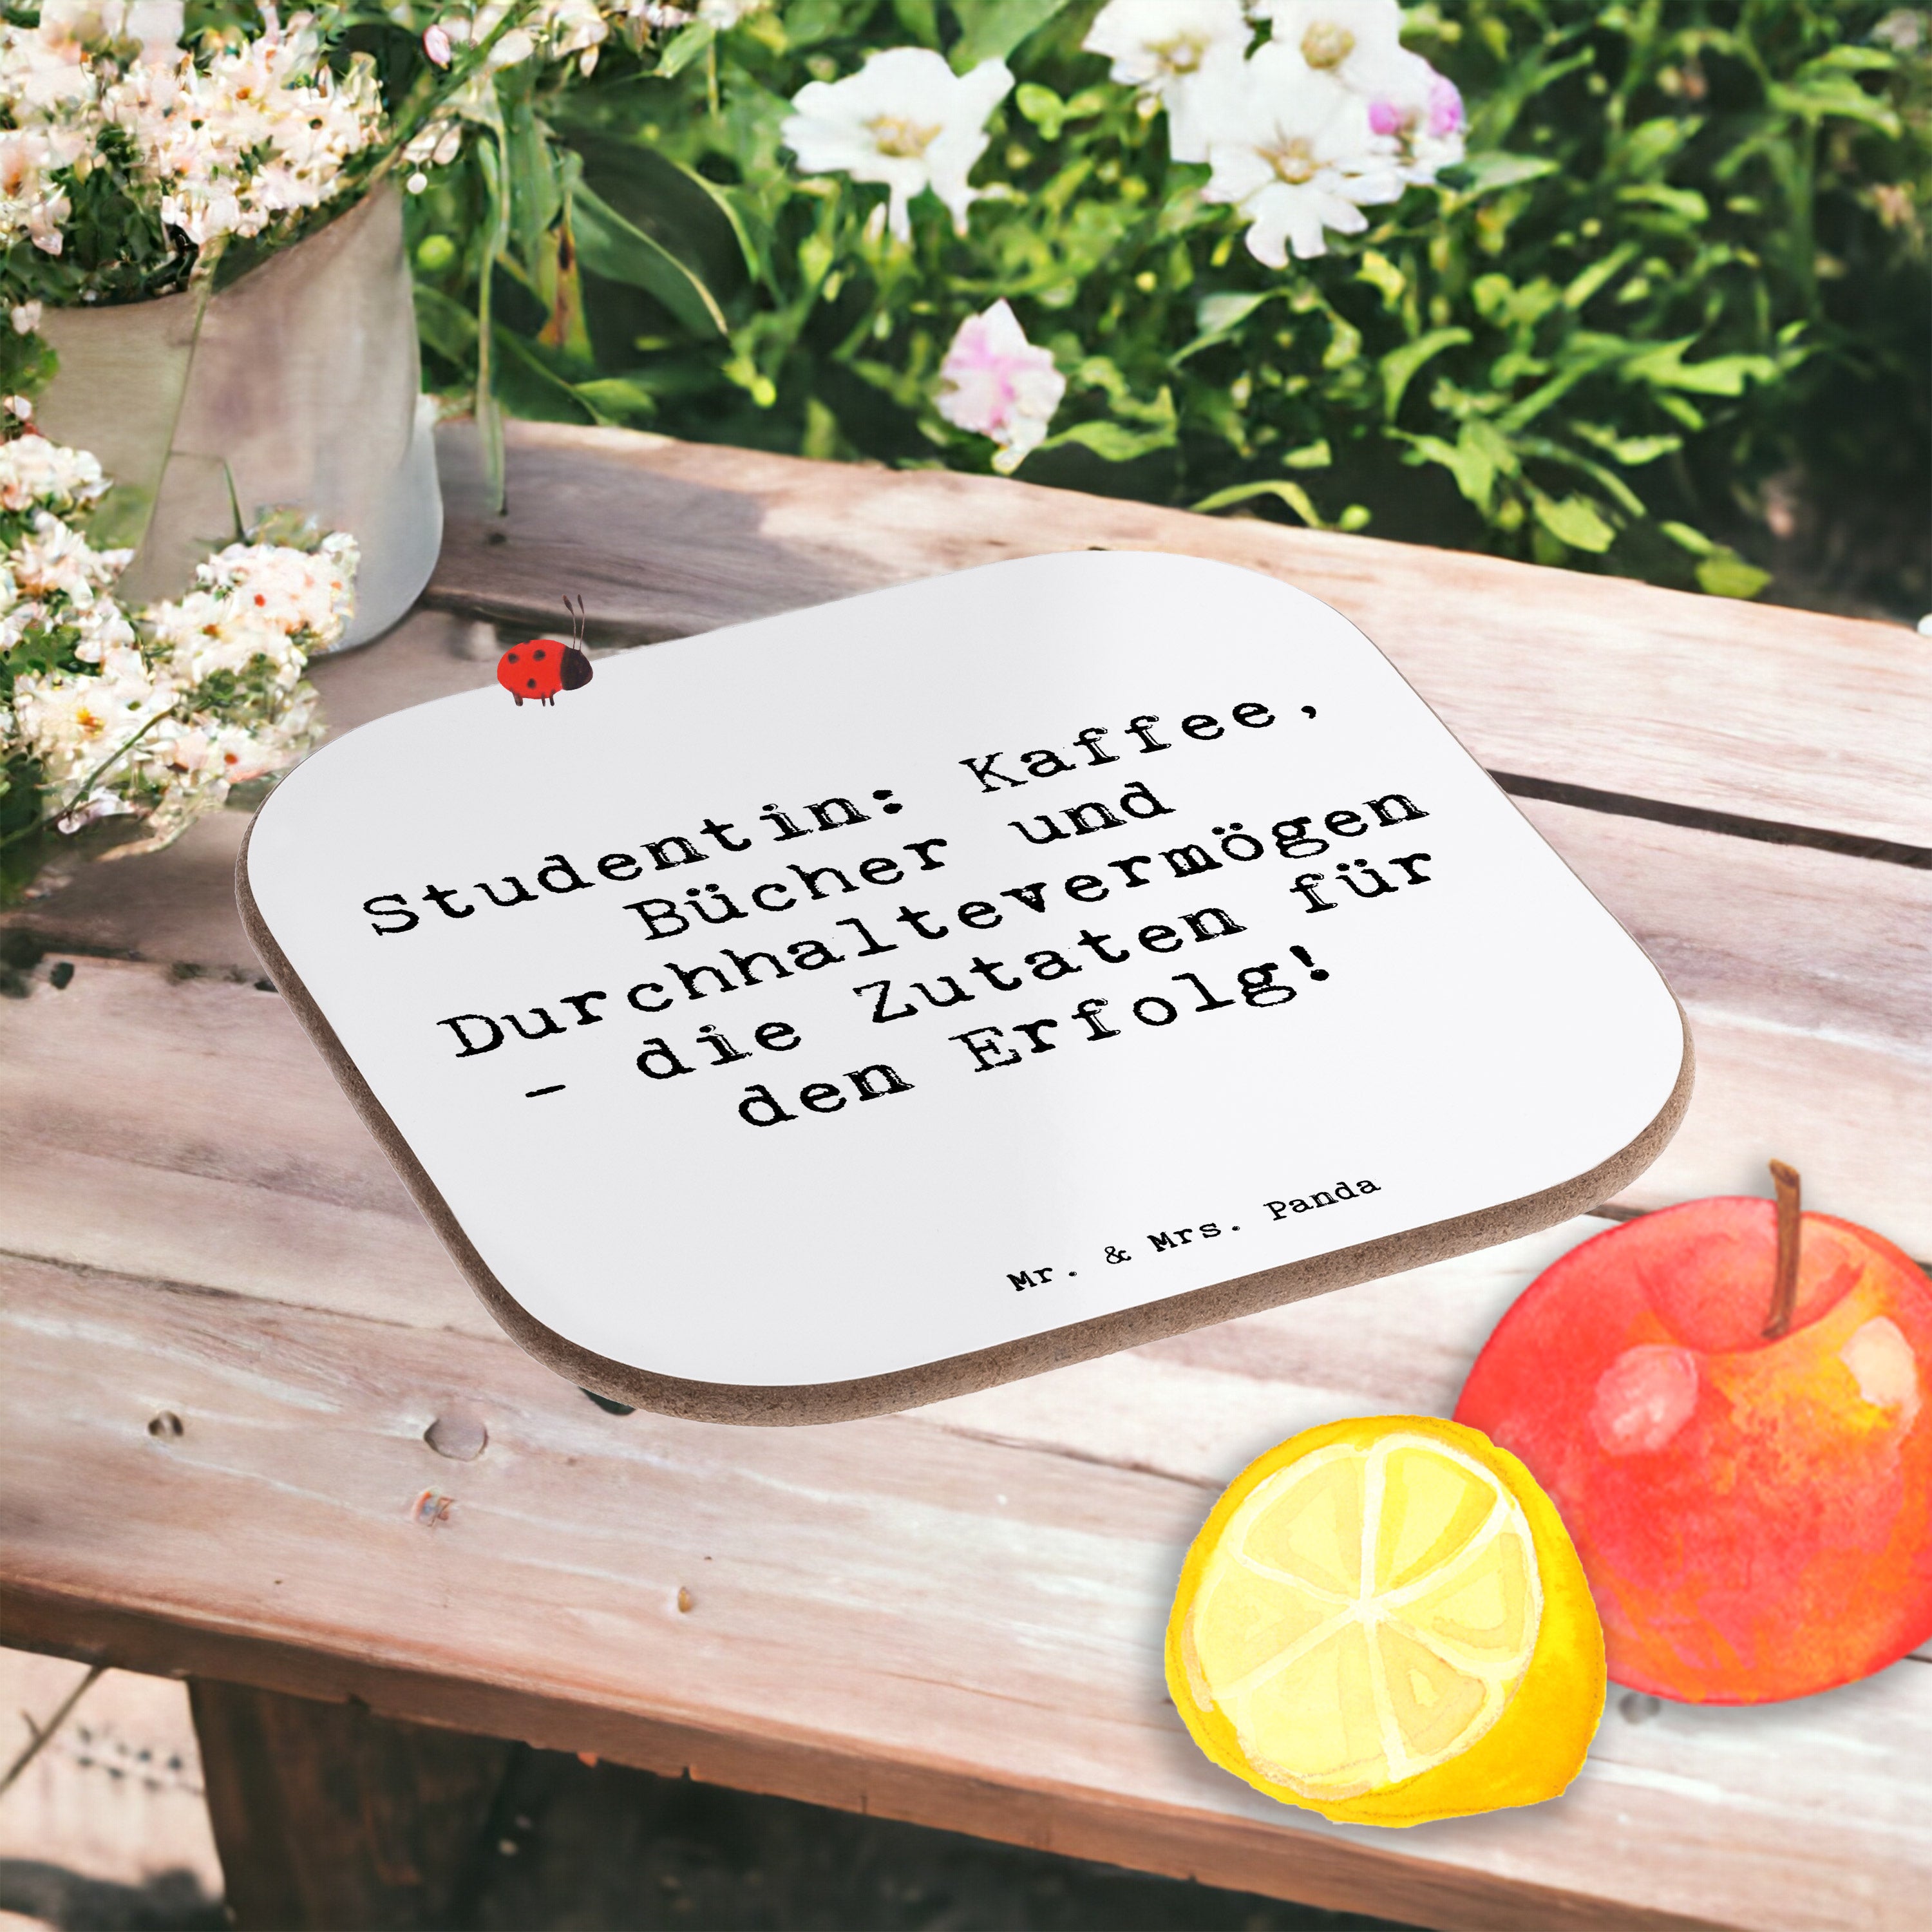 Studentin: Kaffee,
Bücher und
Durchhaltevermögen
- die Zutaten für
den Erfolg!
Mr. & Mrs. Panda